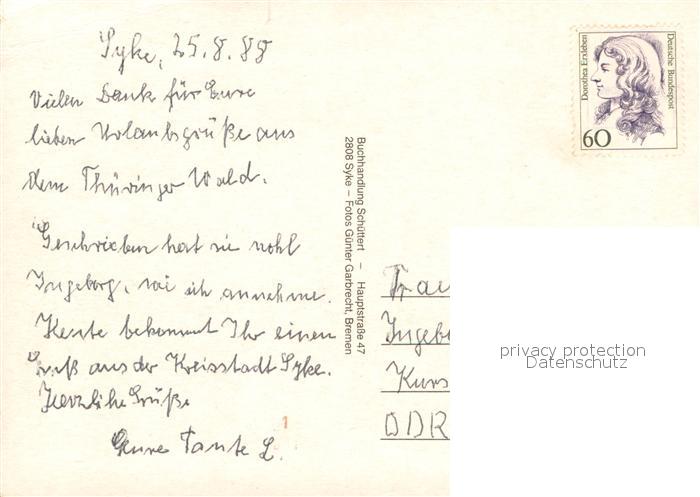 Syke, 25.8.88
Vielen Dank für Eure
lieben Urlaubsgrüße aus
dem Thüringer Wald.
Geschrieben hat sie wohl
Ingeborg, wie ich annehme.
Heute bekommt Ihr einen
Gruß aus der Kreisstadt Syke.
Herzliche Grüße
Eure Tante L.
Buchhandlung Schüttert – Hauptstraße 47
2808 Syke – Fotos Günter Garbrecht, Bremen
Dorothea Erxleben
Deutsche Bundespost
60
Ingebo
Kurs
DDR
privacy protection
Datenschutz